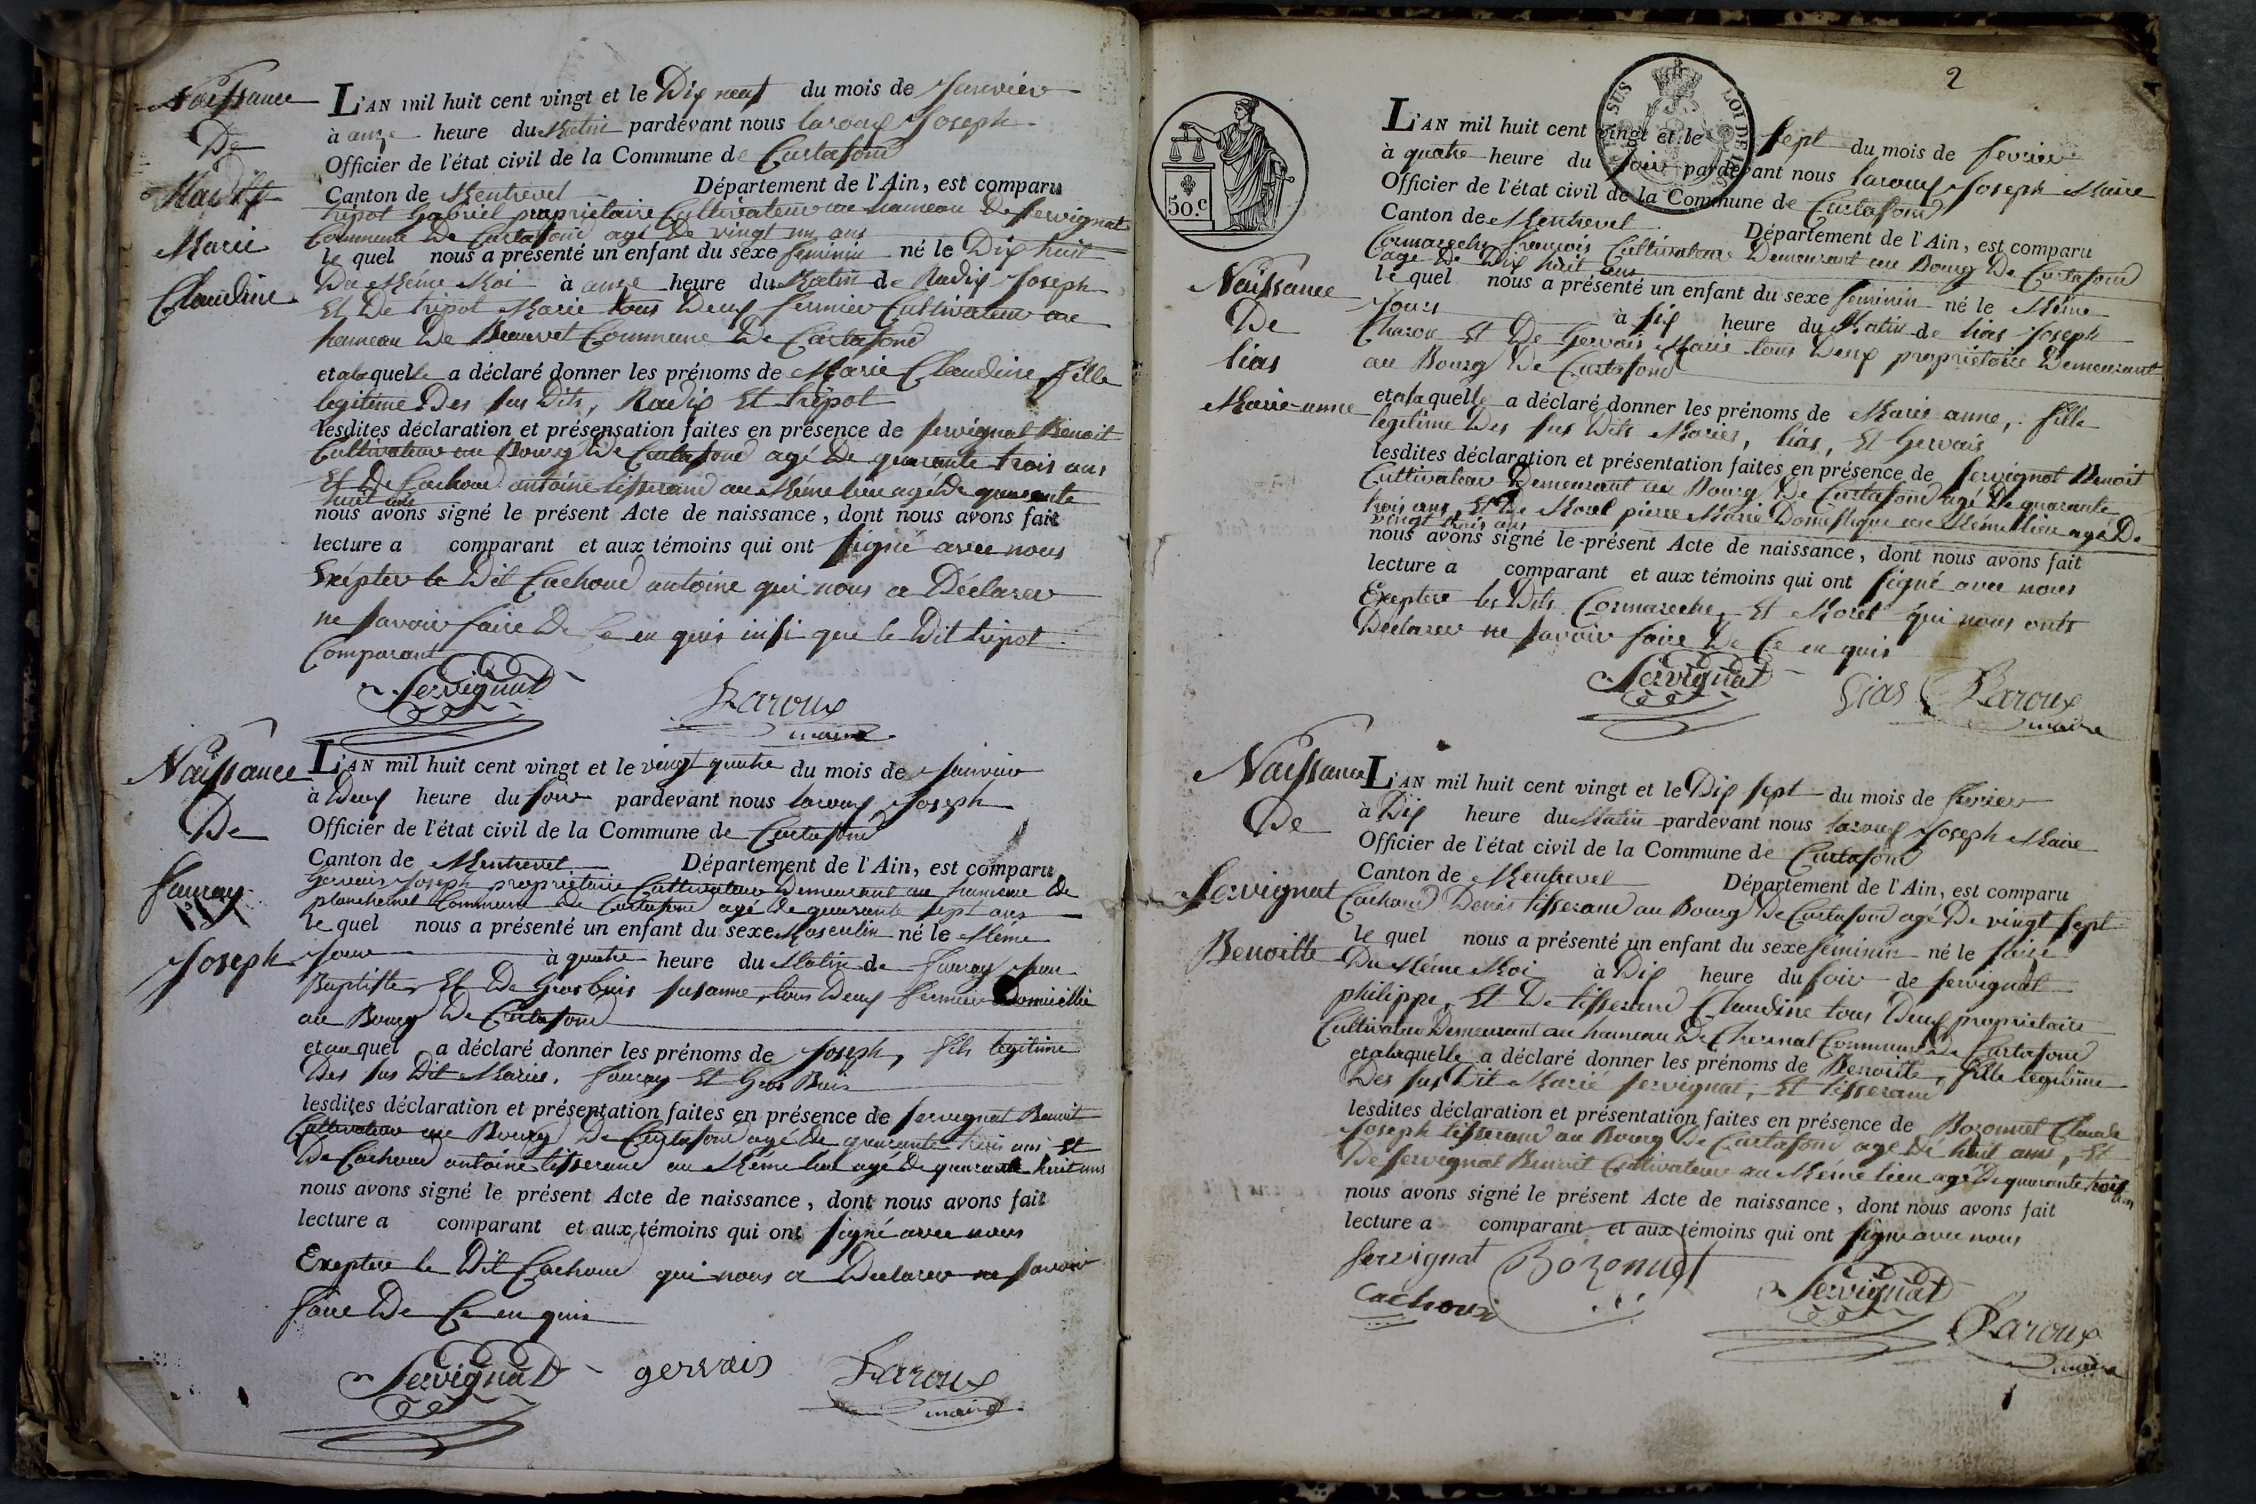 Naissance
De
Marie
Claudine
L'AN mil huit cent vingt et le Dix neuf du mois de Janvier
à onze heure du Matin pardevant nous laroux Joseph
Officier de l'état civil de la Commune de Curtafond
Canton de Montrevel Département de l'Ain, est comparu
tripot Gabriel proprietaire Cultivateur au hameau De Servignat
Commune De Curtafond agé De vingt un ans
le quel nous a présenté un enfant du sexe feminin né le Dix huit
Du Méme Moi à onze heure du Matin de Radix Joseph
Et De tripot Marie tous Deux fermier Cultivateur au
hameau De Commune De Curtafond
et a la quelle a déclaré donner les prénoms de Marie Claudine fille
legitime Des sus Dits, Radix Et tripot
lesdites déclaration et présensation faites en présence de Servignat Benoit
Cultivateur au Bourg De Curtafond agé De quarante trois ans
Et De Cachoud antoine tisserand au Méme lieu agé De quarante
huit ans
nous avons signé le présent Acte de naissance, dont nous avons fait
lecture a comparant et aux témoins qui ont signé avec nous
Exépter le Dit Cachoud antoine qui nous a Déclarer
ne savoir faire De Ce en quis insi que le Dit tripot
Comparant
Servignat Laroux
maire
Naissance
De
Joseph
L'AN mil huit cent vingt et le vingt quatre du mois de Janvier
à Deux heure du soir pardevant nous laroux Joseph
Officier de l'état civil de la Commune de Curtafond
Canton de Montrevel Département de l'Ain, est comparu
Gervais Joseph proprietaire Cultivateur Demeurant au hameau De
Commune De Curtafond agé De quarante sept ans
le quel nous a présenté un enfant du sexe Masculin né le Méme
Jour à quatre heure du Matin de Jean
Baptiste, Et De Grosbuis susanne, tous Deux fermier Domicillié
au Bourg De Curtafond
et au quel a déclaré donner les prénoms de Joseph, fils legitime
Des sus Dit Mariés, Et Gros Buis
lesdites déclaration et présentation faites en présence de Servignat Benoit
Cultivateur au Bourg De Curtafond agé De quarante trois ans Et
De Cachoud antoine tisserand au Méme lieu agé De quarante huit ans
nous avons signé le présent Acte de naissance, dont nous avons fait
lecture a comparant et aux témoins qui ont signé avec nous
Exepter le Dit Cachoud qui nous a Declarer ne savoir
faire De Ce en quis
Servignat gervais Laroux
maire
2
50.c
SUS LOI DE
Naissance
De
lias
Marie anne
L'AN mil huit cent vingt et le sept du mois de fevrier
à quatre heure du soir pardevant nous laroux Joseph Maire
Officier de l'état civil de la Commune de Curtafond
Canton de Montrevel Département de l'Ain, est comparu
Cormareche françois Cultivateur Demeurant au Bourg De Curtafond
agé De Dix huit ans
le quel nous a présenté un enfant du sexe feminin né le Méme
Jours à six heure du Matin de lias Joseph
Charon Et De Gervais Marie tous Deux proprietaire Demeurant
au Bourg De Curtafond
et a la quelle a déclaré donner les prénoms de Marie anne, fille
legitime Des sus Dits Mariés, lias, Et Gervais
lesdites déclaration et présentation faites en présence de Servignat Benoit
Cultivateur Demeurant au Bourg De Curtafond agé De quarante
trois ans, Et De Morel pierre Marie Domestique au Méme lieu agé De
vingt trois ans
nous avons signé le présent Acte de naissance, dont nous avons fait
lecture a comparant et aux témoins qui ont signé avec nous
Exepter les Dits Cormareche, Et Morel qui nous onts
Déclarer ne savoir faire De Ce en quis
Servignat Lias Laroux
maire
Naissance
De
Servignat
Benoitte
L'AN mil huit cent vingt et le Dix sept du mois de fevrier
à Dix heure du Matin pardevant nous laroux Joseph Maire
Officier de l'état civil de la Commune de Curtafond
Canton de Montrevel Département de l'Ain, est comparu
Cachoud Denis tisserand au Bourg De Curtafond agé De vingt sept
le quel nous a présenté un enfant du sexe féminin né le saize
Du Méme Moi à Dix heure du soir de servignat
philippe, Et De tisserand Claudine tous Deux proprietaire
Cultivateur Demeurant au hameau De Commune De Curtafond
et a la quelle a déclaré donner les prénoms de Benoitte, fille legitime
Des sus Dit Marié servignat, Et tisserand
lesdites déclaration et présentation faites en présence de Bozonnet Claude
Joseph tisserand au Bourg De Curtafond agé De huit ans, Et
De servignat Benoit Cultivateur au Méme lieu agé De quarante trois
ans
nous avons signé le présent Acte de naissance, dont nous avons fait
lecture a comparant et aux témoins qui ont signé avec nous
servignat Bozonnet
Cachoux Servignat Laroux
maire